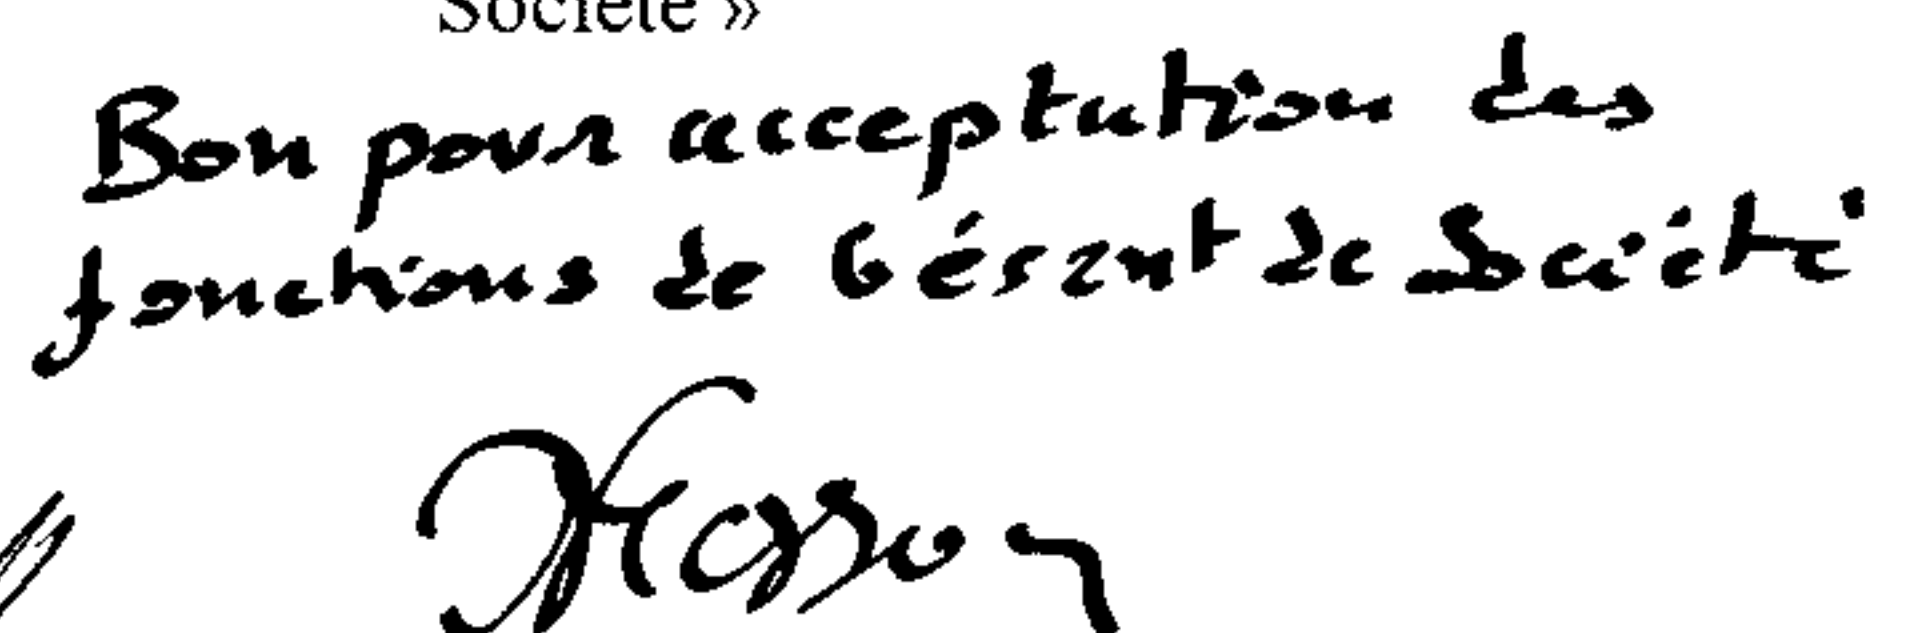 Société »
Bon pour acceptation des
fonctions de Gérant de Société